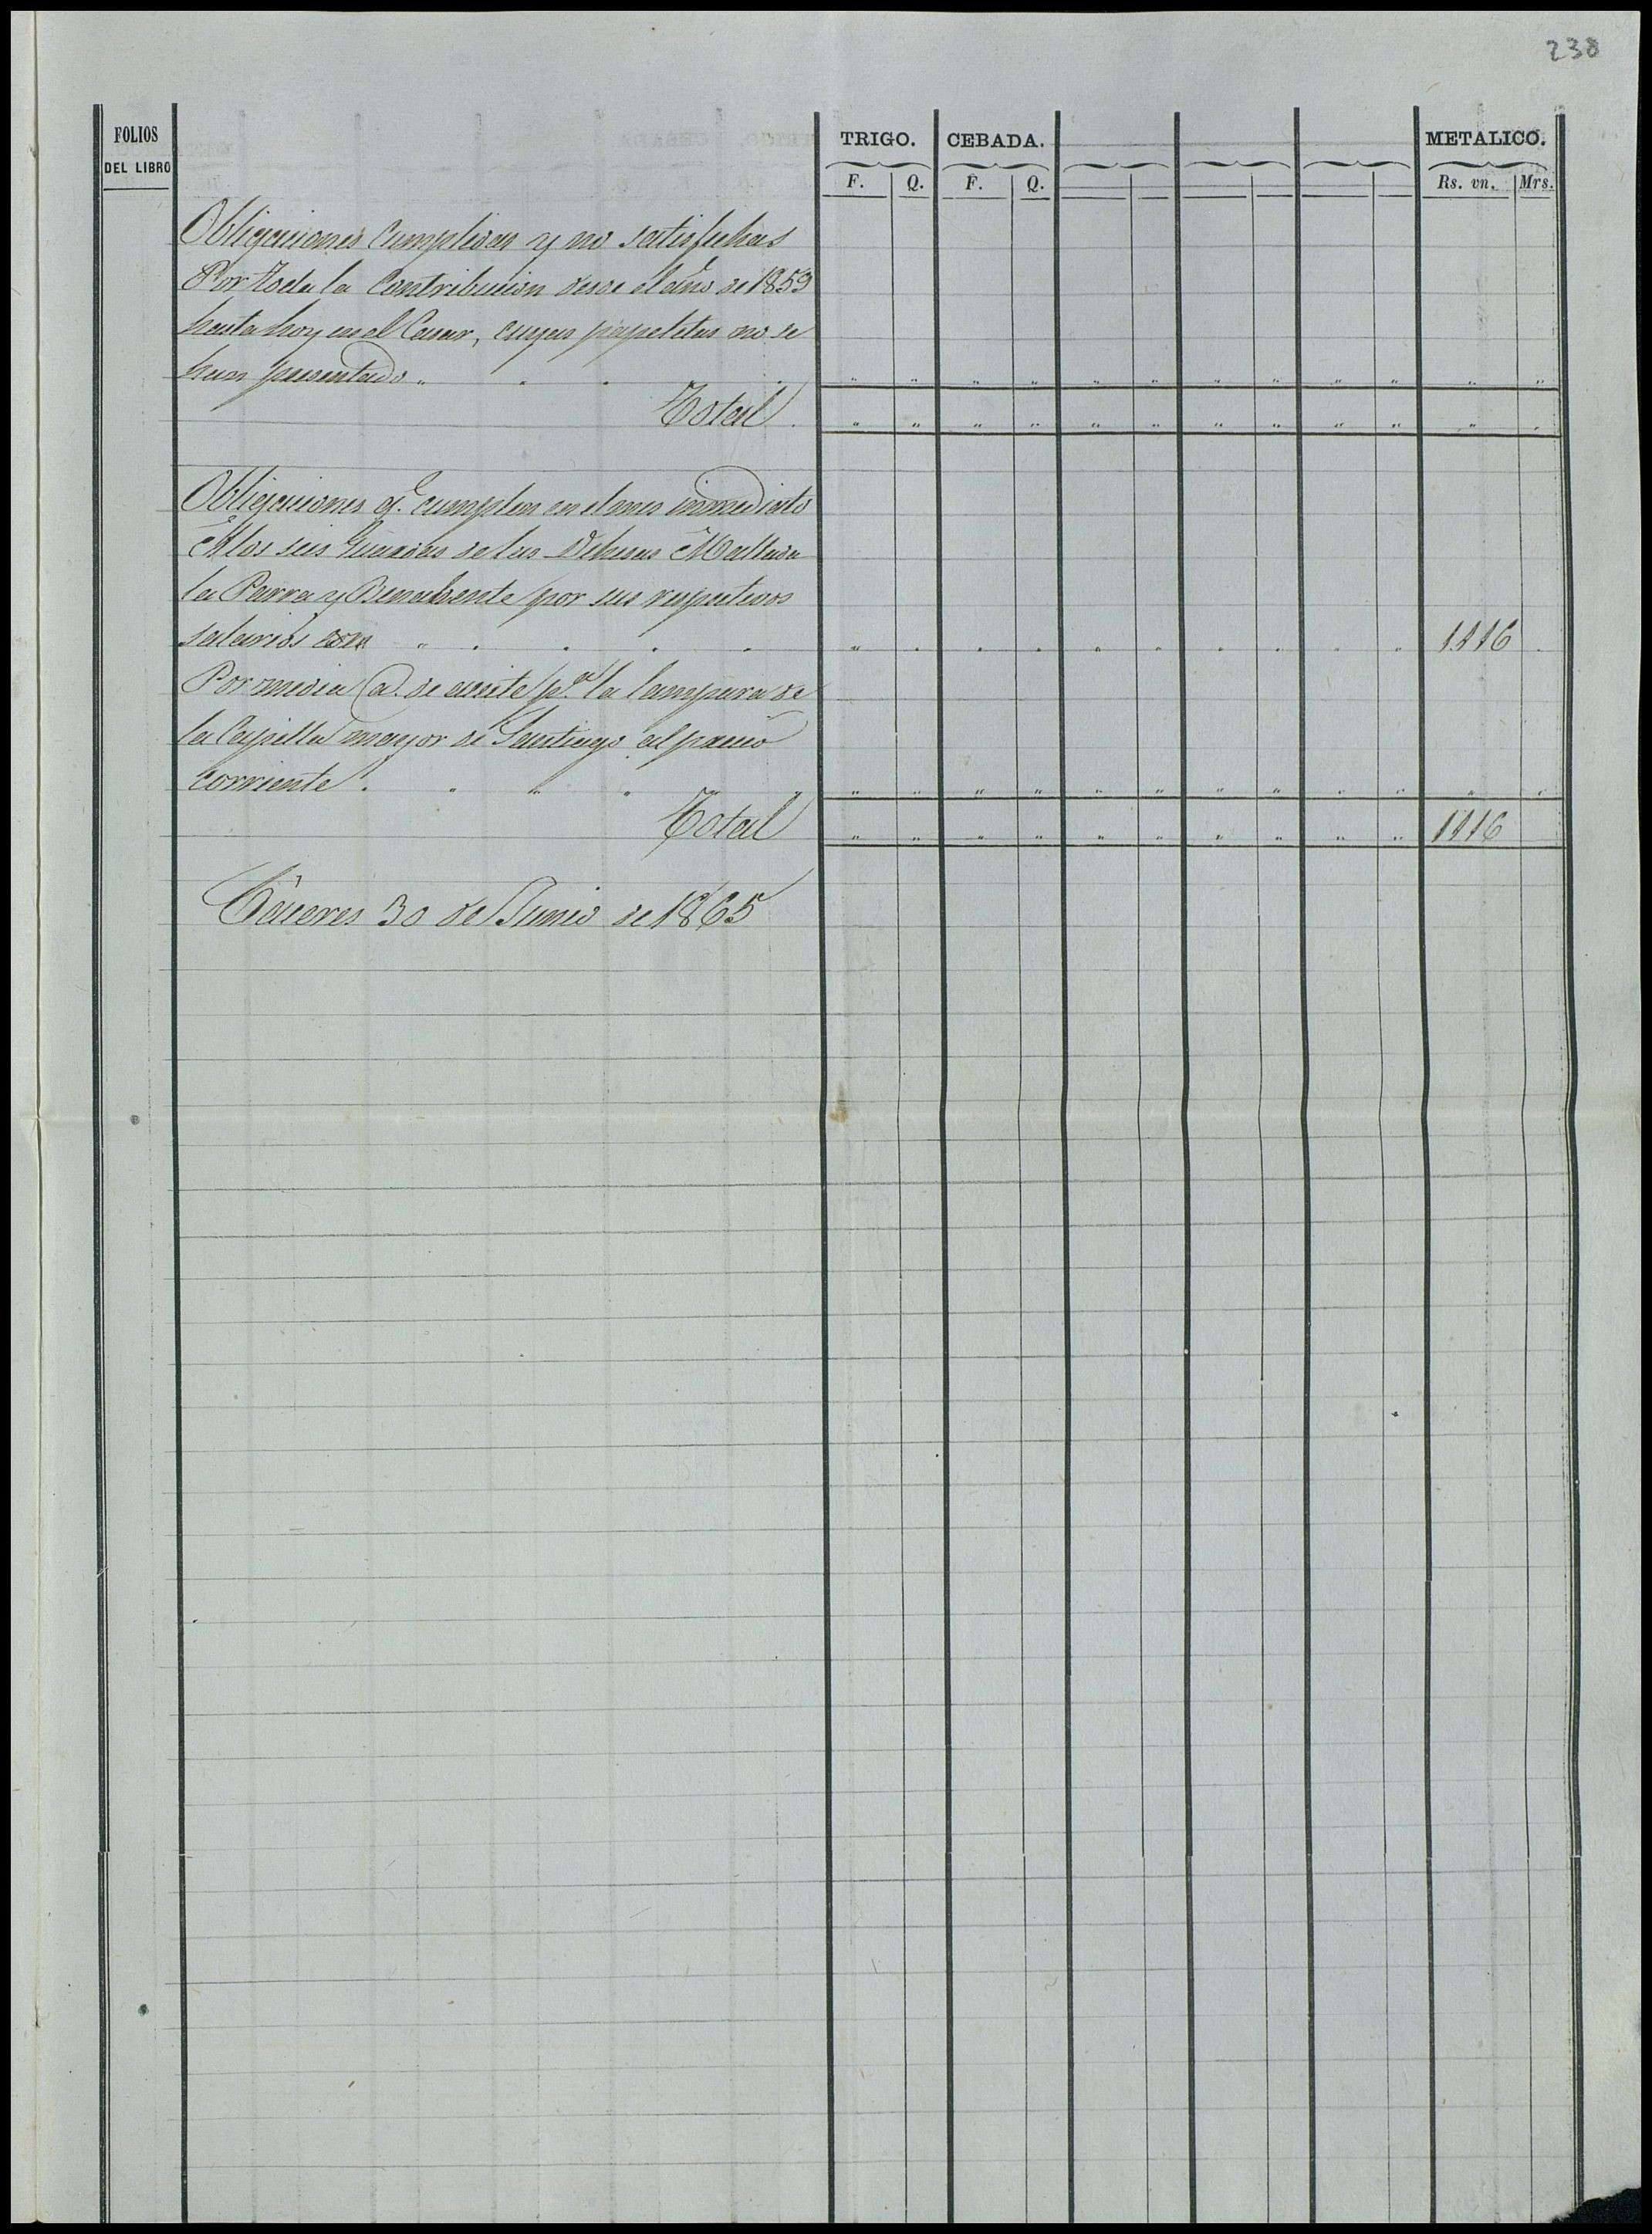 238
FOLIOS
DEL LIBRO
TRIGO. CEBADA. METALICO.
F. Q. F. Q. Rs. vn. Mrs.
Obligaciones Cumplidas y no satisfechas
Por toda la Contribucion desde el año de 1859
hasta hoy en el Casar, cuyas papeletas no se
han presentado " " " " " " " " " " " " " "
Total " " " " " " " " " " " "
Obligaciones q.e cumplen en el mes inmediato
A los seis Guardas de las Dehesas Mallada
la Parra y Benabente por sus respectivos
salarios " " " " " " " " " " 1116
Por media @. de aceite p.a la lampara de
la Capilla mayor de Santiago al precio
corriente " " " " " " " " " " " "
Total " " " " " " " " " " 1116
Cáceres 30 de Junio de 1865